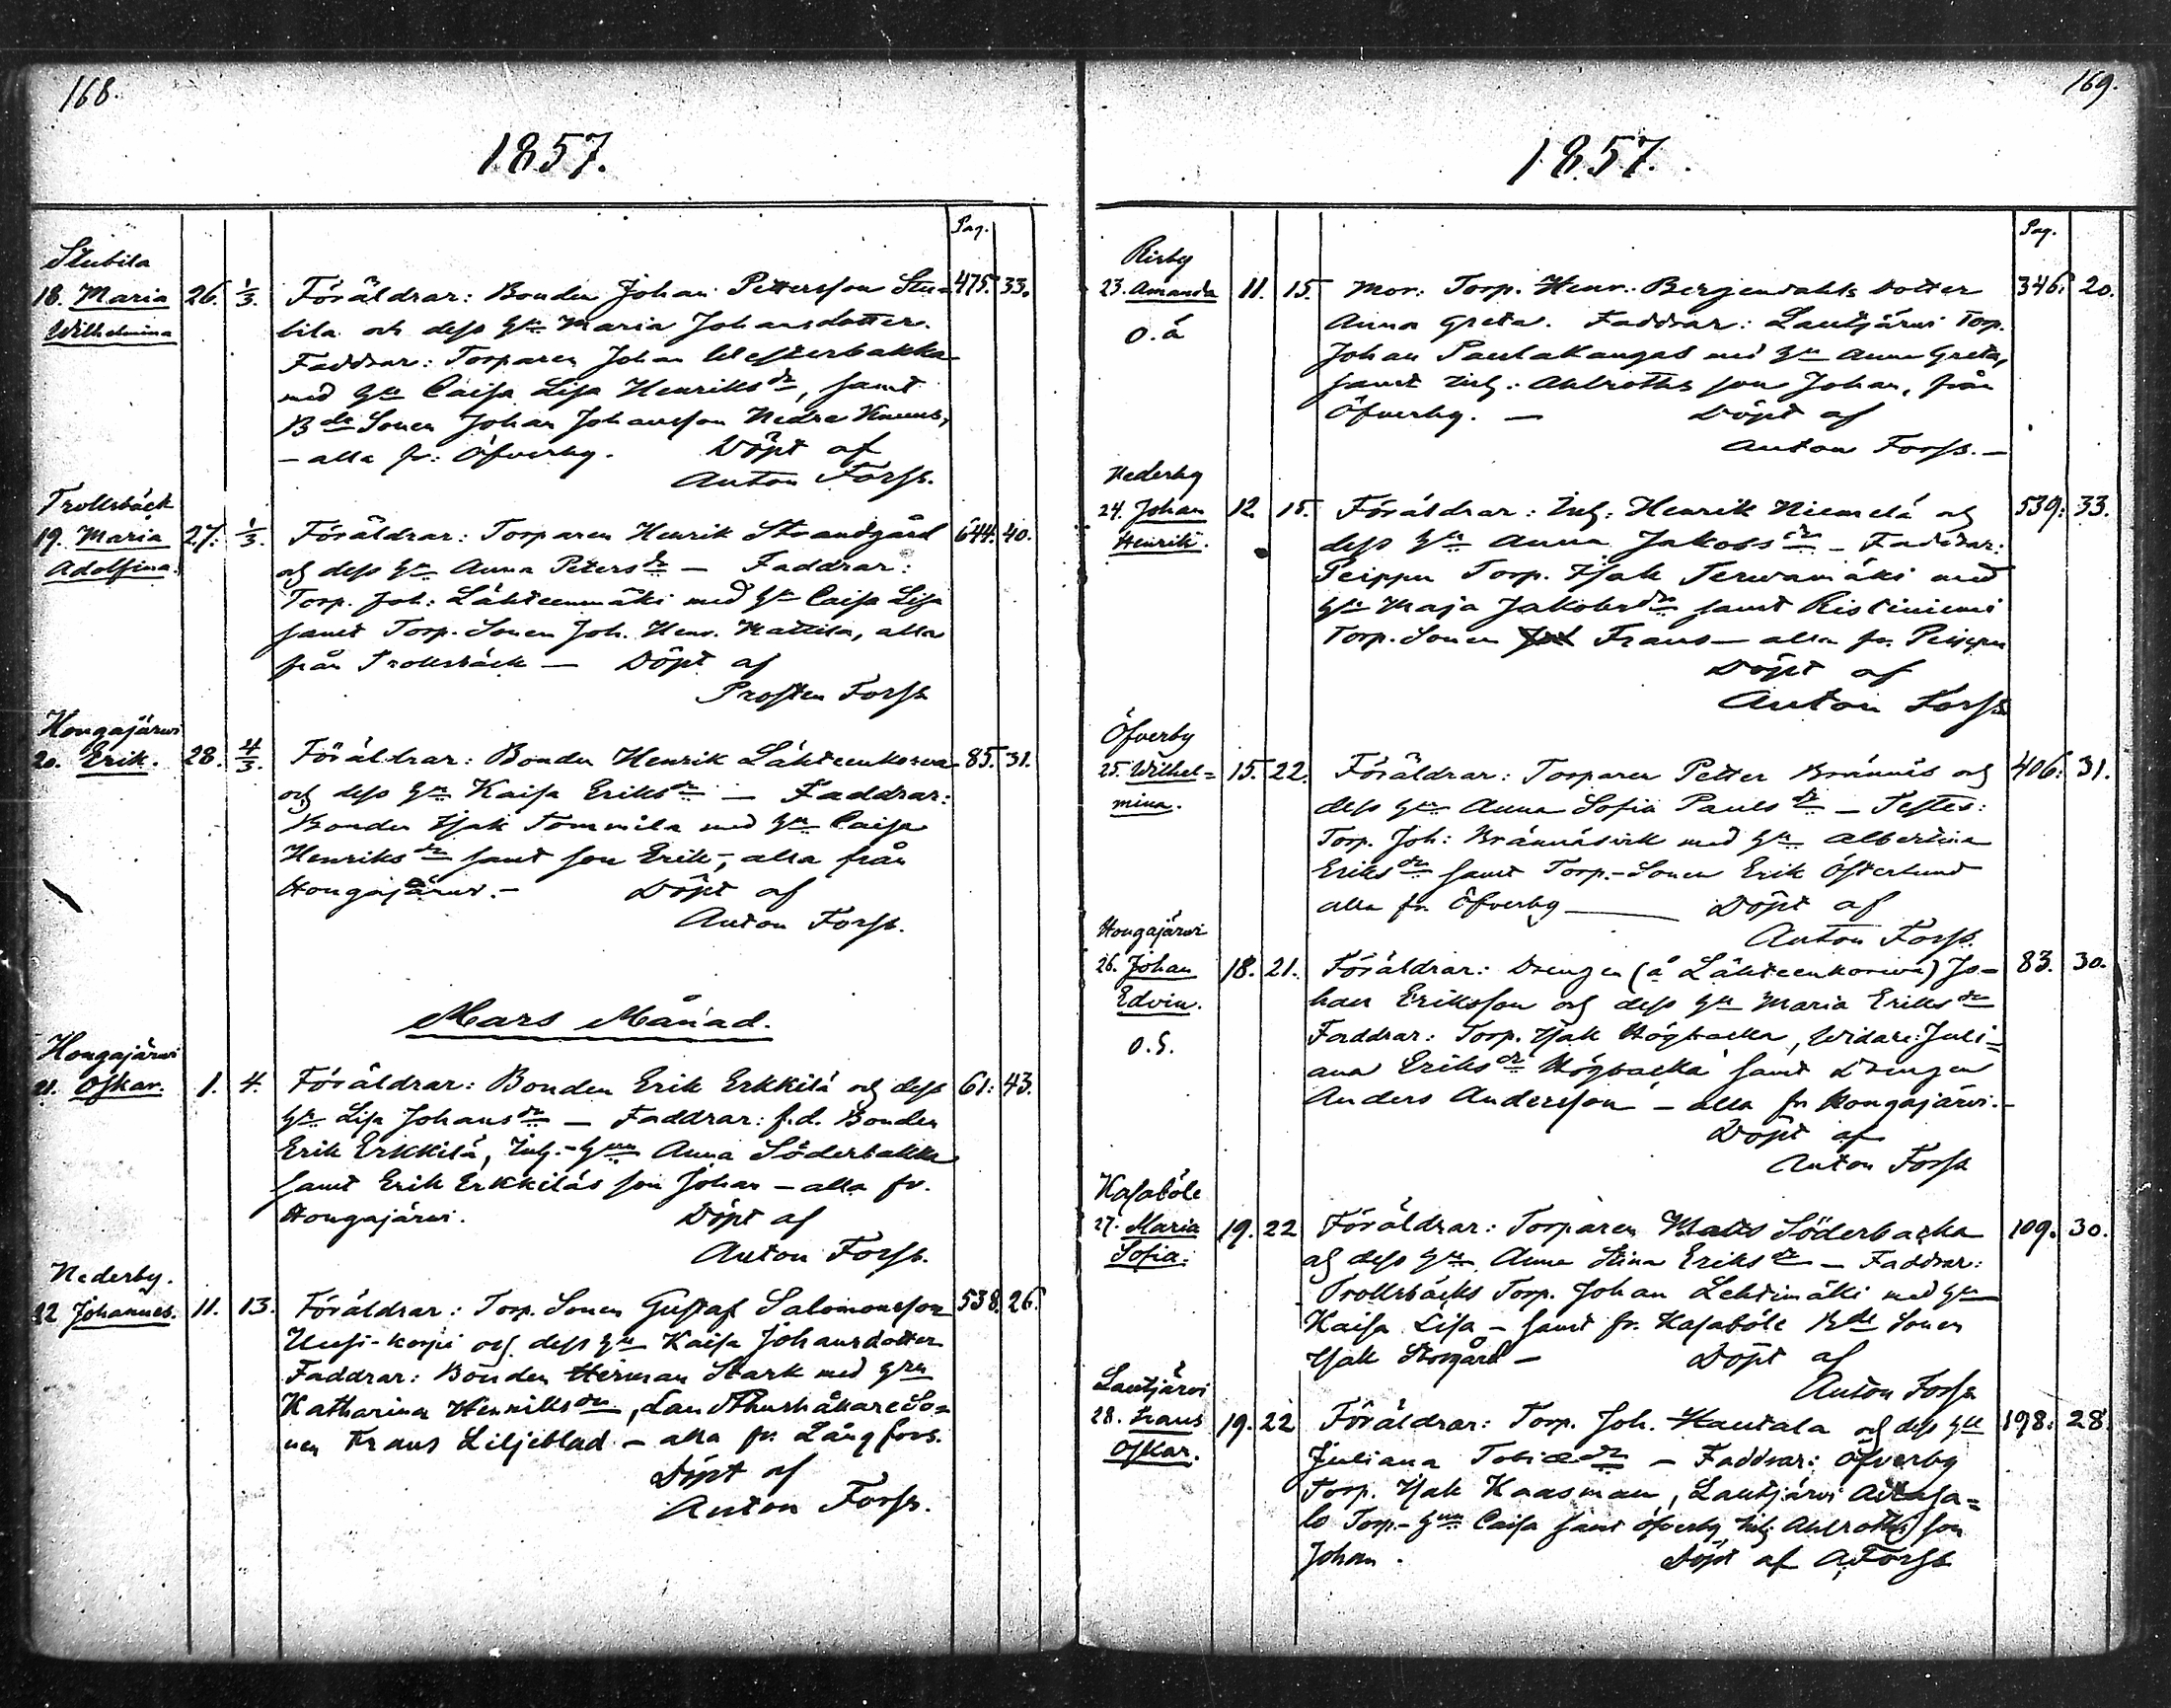 168.
1857.
Pag.
Stubila
18. Maria 26. 1/3. Föräldrar: Bonden Johan Pettersson Stu= 475. 33.
Wilhelmina bila och dess h:u Maria Johansdotter.
Faddrar: Torparen Johan Westerbakka
med h:u Caisa Lisa Henriks dr, samt
B:de Sonen Johan Johansson Nedre
– alla fr: Öfverby. Döpt af
Anton Forss.
Trollsbäck
19. Maria 27. 1/3. Föräldrar: Torparen Henrik Strandgård 644. 40.
Adolfina. och dess h:u Anna Peters dr — Faddrar:
Torp. Joh: Lähteenmäki med h:u Caisa Lisa
samt Torp. Sonen Joh. Henr. Mattila, alla
från Trollsbäck — Döpt af
Prosten Forss
Hongajärwi
20. Erik. 28. 4/3. Föräldrar: Bonden Henrik Lähteenkorwa 85. 31.
och dess h:u Kaisa Eriks dr — Faddrar:
Bonden Isak Tommila med h:u Caisa
Henriks dr samt son Erik, alla från
Hongajärwi. – Döpt af
Anton Forss.
Mars Månad.
Hongajärwi
21. Oskar. 1. 4. Föräldrar: Bonden Erik Erkkilä och dess 61. 43.
h:u Lisa Johans dr — Faddrar: f.d. Bonden
Erik Erkkilä, Inh.-h:un Anna Söderbakka
samt Erik Erkkiläs son Johan – alla fr.
Hongajärwi. Döpt af
Anton Forss.
Nederby.
22 Johannes. 11. 13. Föräldrar: Torp. Sonen Gustaf Salomonsson 538. 26.
Uusi-korpi och dess h:u Kaisa Johansdotter
Faddrar: Bonden Herman Stark med h:ru
Katharina Henriks dr, Landthushållare So=
nen Frans Liljeblad – alla fr. Långfors.
Döpt af
Anton Forss.
169.
1857.
Pag.
Risby
23. Amanda 11. 15. Mor: Torp. Henr: Bergendahls dotter 346. 20.
O.ä Anna Greta. Faddrar: Lautjärwi Torp.
Johan Pantakangas med h:u Anna Greta,
samt Inh: Ahlroths son Johan, från
Öfverby. — Döpt af
Anton Forss. —
Nederby
24. Johan 12. 15. Föräldrar: Inh: Henrik Niemelä och 539. 33.
Henrik. dess h:u Anna Jakobs dr – Faddrar:
Peippu Torp. Isak Terwamäki med
h:u Maja Jakobs dr samt Ristiniemi
Torp. Sonen Frans – alla fr. Peippu
Döpt af
Anton Forss
Öfverby
25. Wilhel= 15. 22. Föräldrar: Torparen Petter Brännäs och 406. 31.
mina. dess h:u Anna Sofia Pauls dr – Testes:
Torp. Joh: Brännäsvik med h:u Albertina
Eriks dr samt Torp.-Sonen Erik Österlund
alla fr. Öfverby ——— Döpt af
Anton Forss.
Hongajärwi
26. Johan 18. 21. Föräldrar: Drengen (å Lähteenkorwa) Jo= 83. 30.
Edvin. han Eriksson och dess h:u Maria Eriks dr
O.S. Faddrar: Torp. Isak Högbacka, Widare: Juli=
ana Eriks dr Högbacka samt Drengen
Anders Andersson – alla fr Hongajärwi. –
Döpt af
Anton Forss
Kasaböle
27. Maria 19. 22 Föräldrar: Torparen Mats Söderbacka 109. 30.
Sofia: och dess h:u Anna Stina Eriks dr – Faddrar:
Trollsbäcks Torp. Johan Lehtimäki med h:u
Kaisa Lisa – samt fr. Kasaböle B:de Sonen
Isak Storgård – Döpt af
Anton Forss
Lautjärwi
28. Frans 19. 22 Föräldrar: Torp. Joh. Hautala och dess h:u 198. 28.
Oskar. Juliana Tobiæ dr – Faddrar: Öfverby
Torp. Isak Kaasman, Lautjärwi
lo Torp.-h:un Caisa samt Öfverby Inh: Ahlroths son
Johan. Döpt af A. Forss